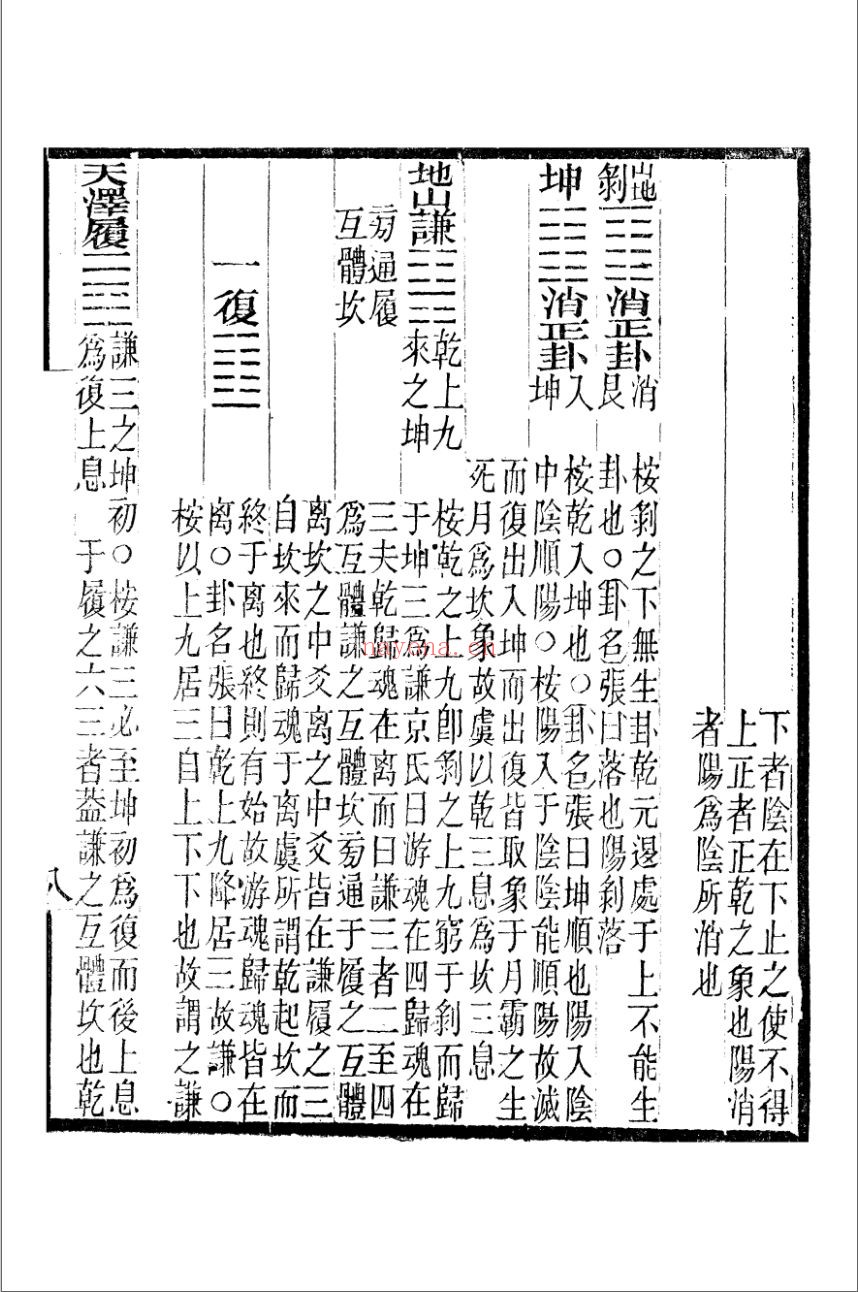 下者陰在下止之使不得
上正者正乾之象也陽消
者陽爲陰所消也
山地剝䷖消正卦消艮
桉剝之下無生卦乾元退處于上不能生
卦也〇卦名張曰落也陽剝落
坤䷁消正卦入坤
桉乾入坤也〇卦名張曰坤順也陽入陰
中陰順陽〇桉陽入于陰陰能順陽故滅
而復出入坤而出復皆取象于月霸之生
死月爲坎象故虞以乾三息爲坎三息
地山謙䷎乾上九來之坤
桉乾之上九卽剝之上九窮于剝而歸
于坤三爲謙京氏曰游魂在四歸魂在
三夫乾歸魂在离而曰謙三者二至四
旁通履
互體坎
爲互體謙之互體坎旁通于履之互體
离坎之中爻离之中爻皆在謙履之三
自坎來而歸魂于离虞所謂乾起坎而
終于离也終則有始故游魂歸魂皆在
离〇卦名張曰乾上九降居三故謙〇
桉以上九居三自上下下也故謂之謙
一復䷗
天澤履䷉謙三之坤初〇桉謙三必至坤初爲復而後上息
爲復上息　于履之六三者葢謙之互體坎也乾
八
nayona.cn